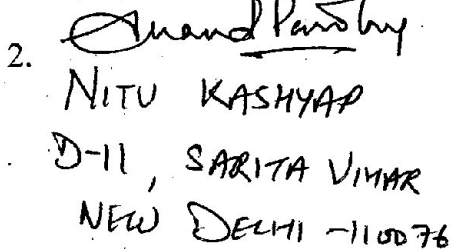 2. Anand
NITU KASHYAP
D-11, SARITA VIHAR
NEW DELHI -110076